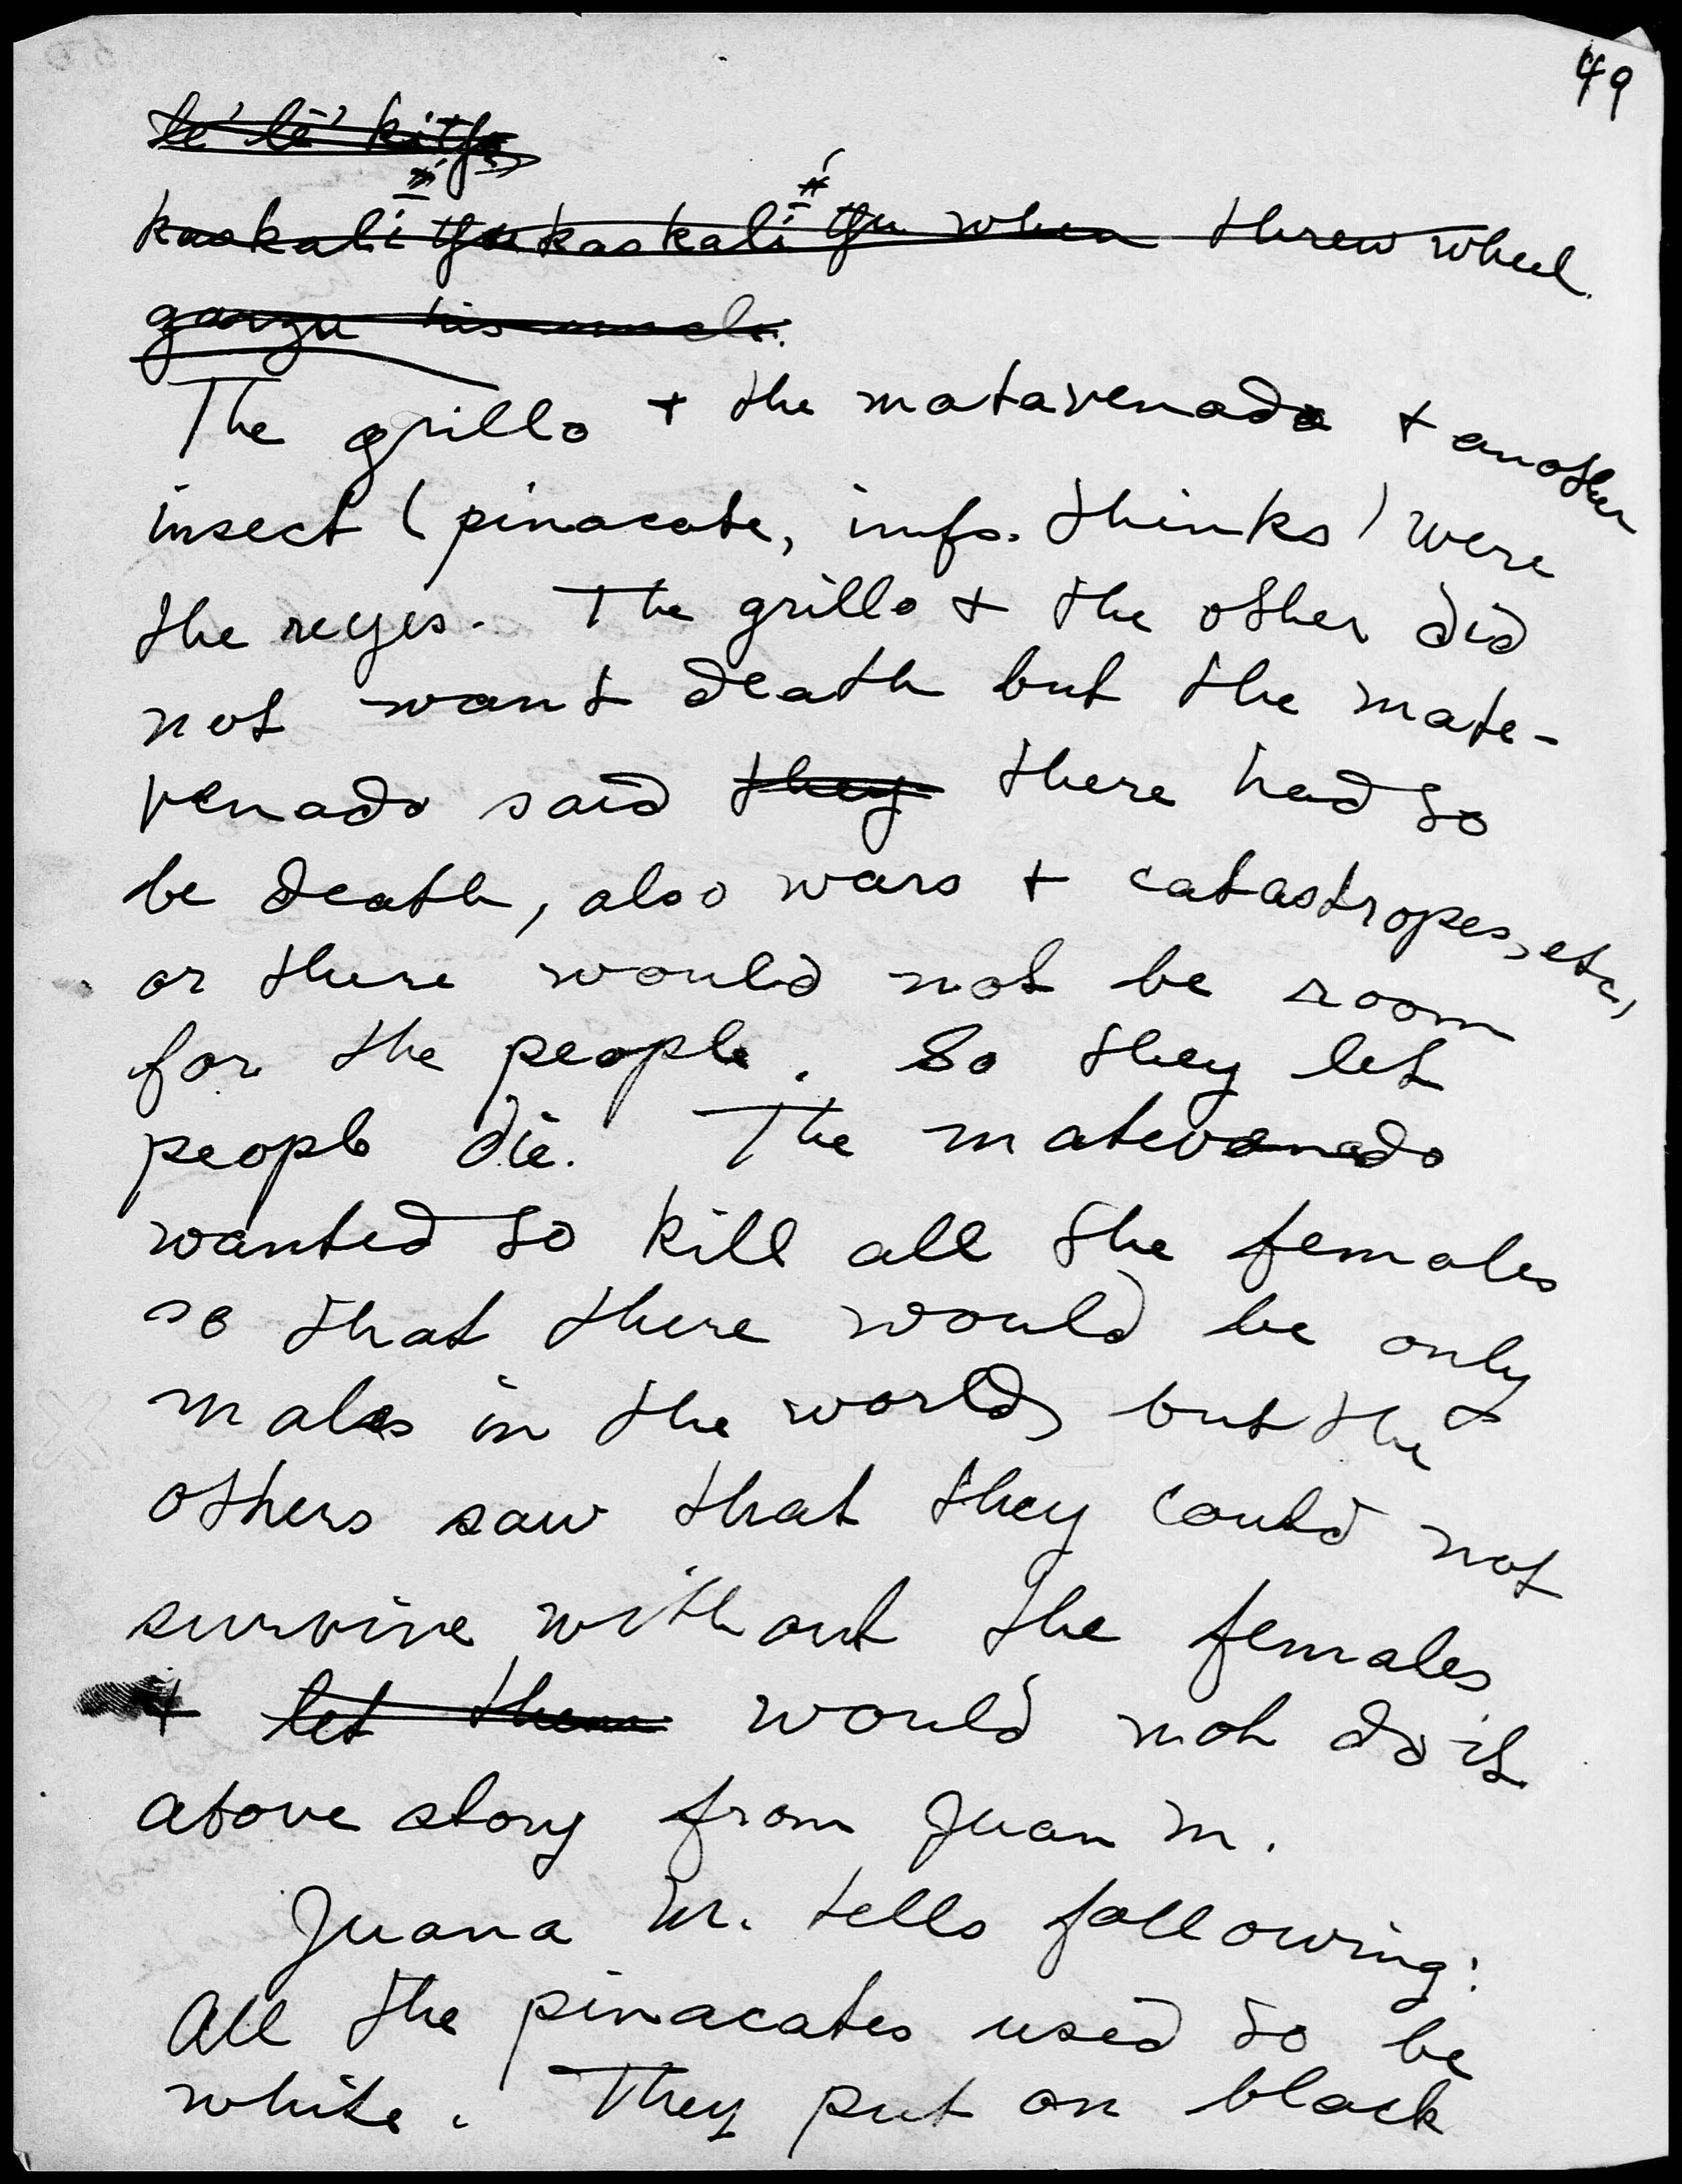 49
kaskali kaskali when threw wheel.
his
The grillo + the matavenado + another
insect (pinacate, infs. thinks) were
the reyes. The grillo + the other did
not want death but the mate-
venado said they there had to
be death, also wars + catastropes, etc,
or there would not be room
for the people. So they let
people die. The matevenado
wanted to kill all the females
so that there would be only
males in the world, but the
others saw that they could not
survive without the females
+ let them would not do it.
above story from Juan M.
Juana M. tells following:
All the pinacates used to be
white. They put on black